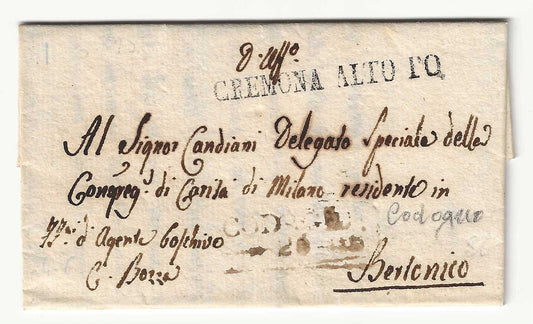 D'Uffo
CREMONA ALTO PO
Al Signor Candiani Delegato Speciale della
Congreg. di Carità di Milano residente in
Codogno
d'Agente
G. Bozza
Bertonico